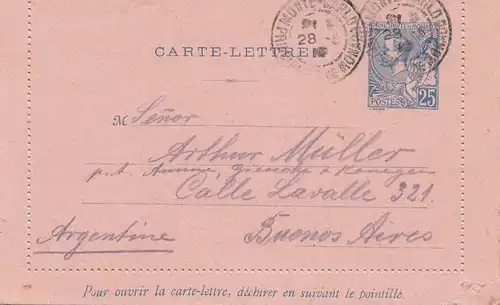 CARTE-LETTRE
POSTES 25
M Señor
Arthur Müller
Calle Lavalle 321.
Buenos Aires
Argentine
Pour ouvrir la carte-lettre, déchirer en suivant le pointillé.